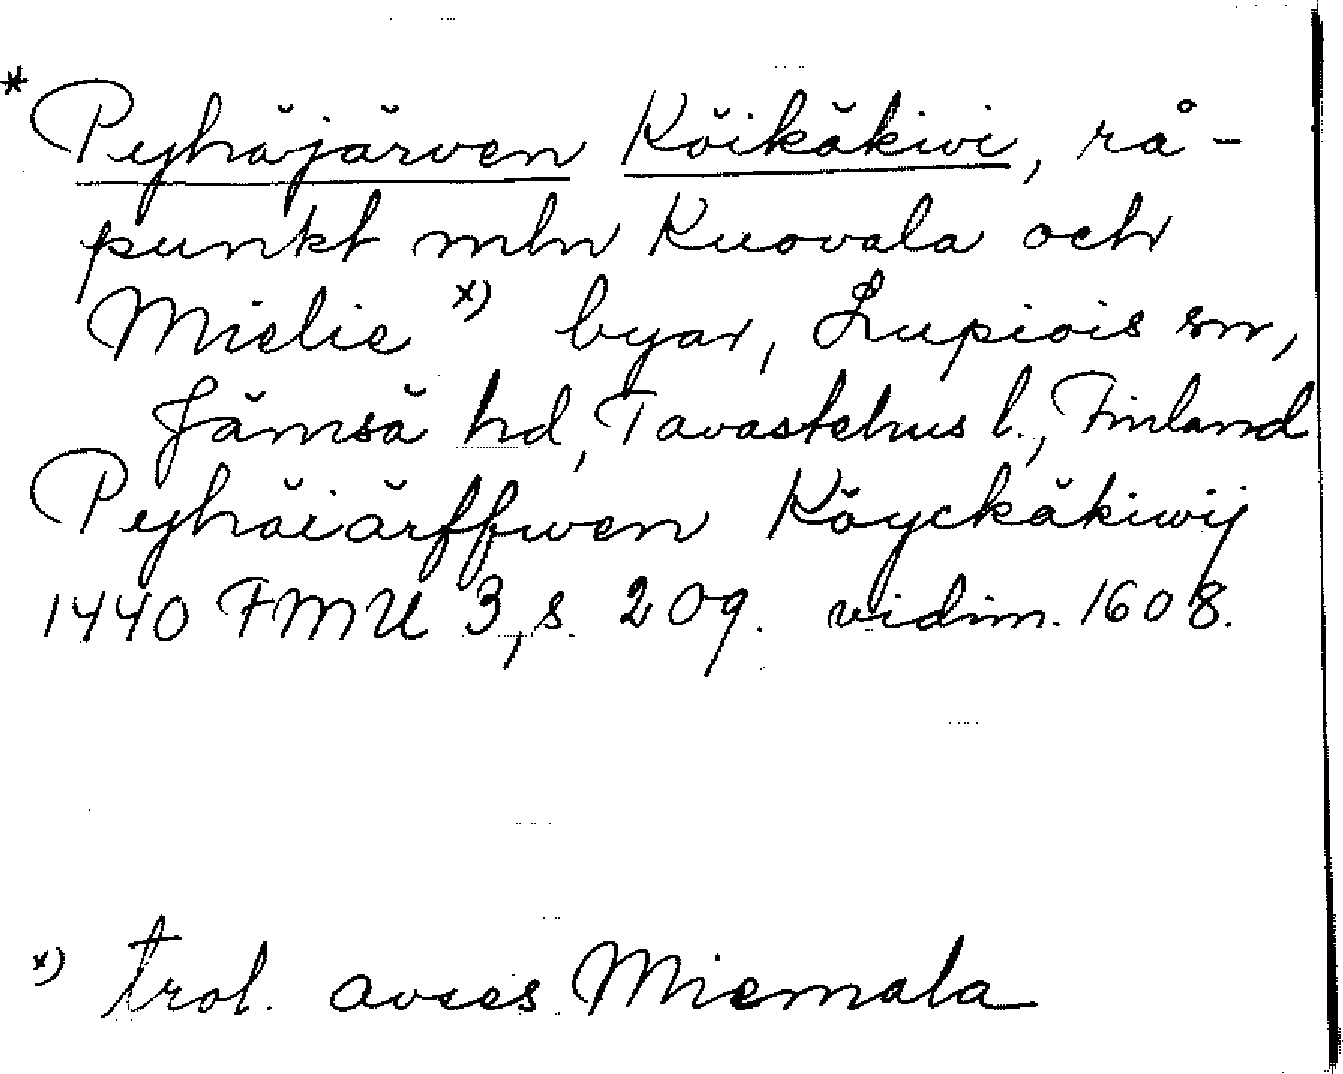 * Pyhäjärven Köikäkivi, rå-
punkt mln Kuovala och
Mielie x) byar, Lupiois sn,
Jämsä hd, Tavastehus l., Finland
Pyhäiärffwen Köyckäkiwij
1440 FMU 3, s. 209. vidim. 1608.
x) trol. avses Miemala